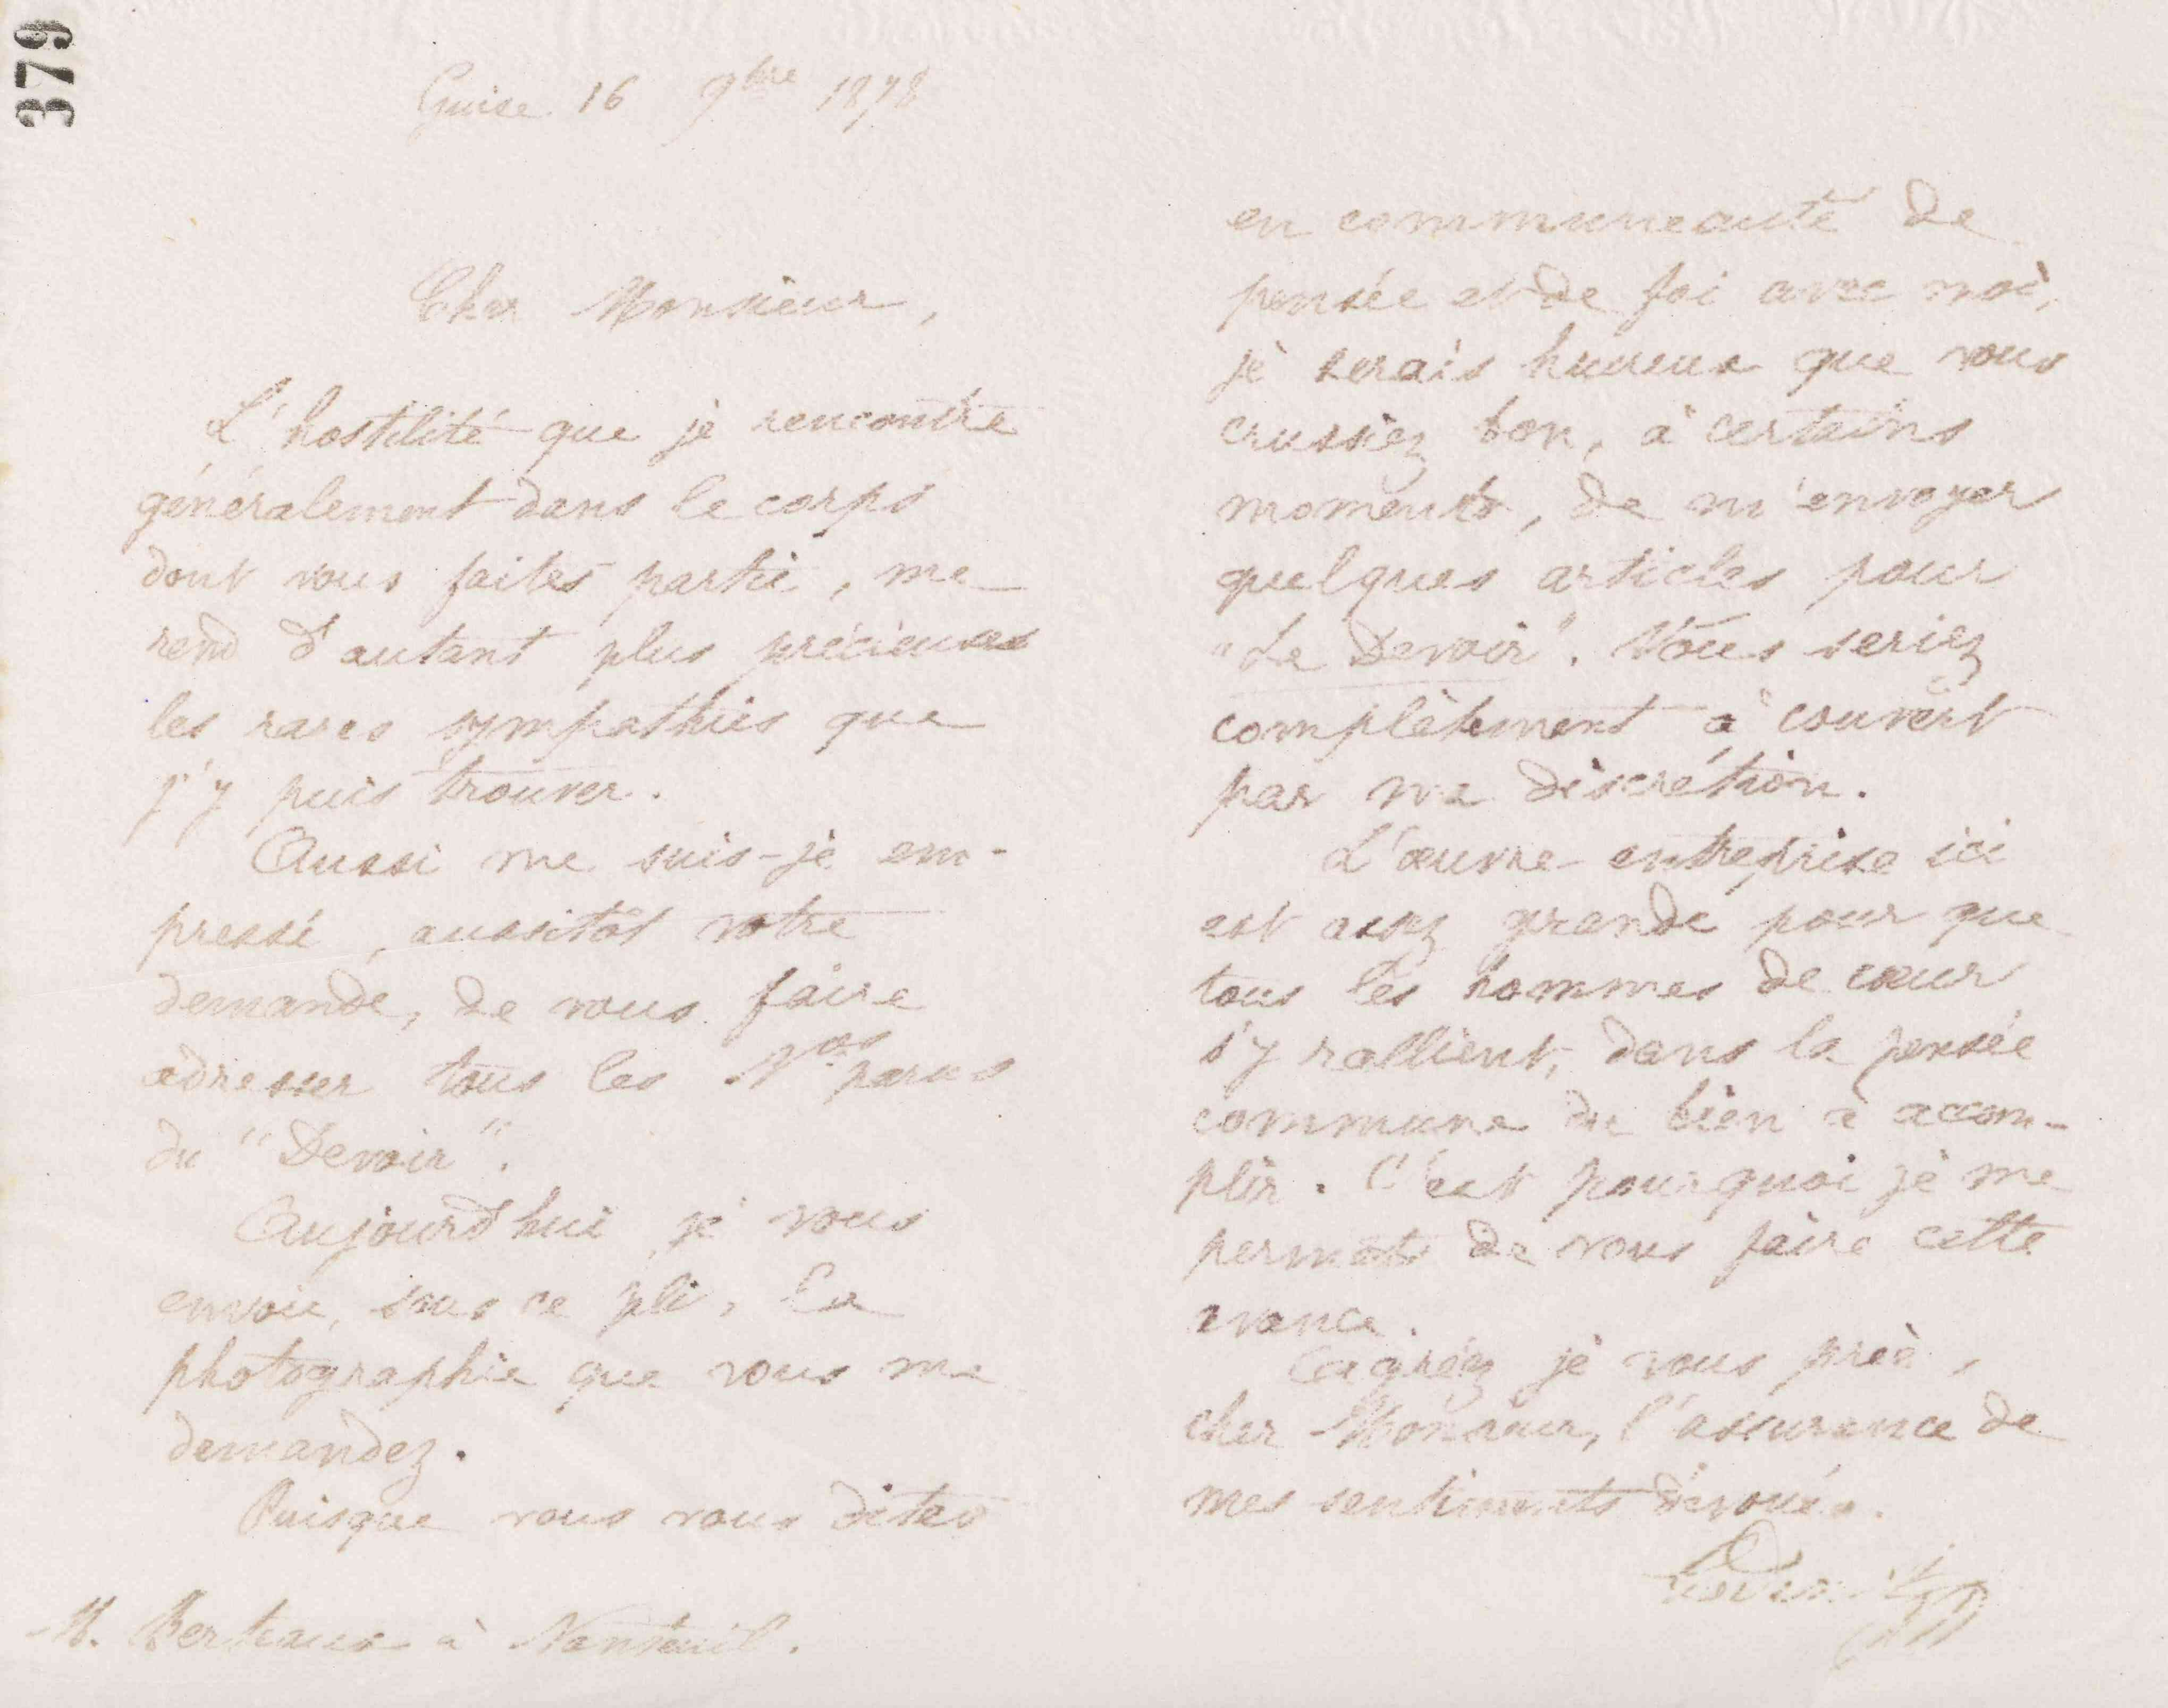 379
Guise 16 9bre 1878
Cher Monsieur,
L'hostilité que je rencontre
généralement dans le corps
dont vous faites partie, me
rend d'autant plus précieuses
les rares sympathies que
j'y puis trouver.
Aussi me suis-je em-
pressé, aussitôt votre
demande, de vous faire
adresser tous les Nos parus
du "Devoir".
Aujourd'hui, je vous
envoie, sous ce pli, la
photographie que vous me
demandez.
Puisque vous vous dites
M. Berteaux à Nanteuil.
en communeauté de
pensée et de foi avec moi,
je serais heureux que vous
crussiez bon, à certains
moments, de m'envoyer
quelques articles pour
"Le Devoir". Vous seriez
complètement à couvert
par ma discrétion.
L'œuvre entreprise ici
est assez grande pour que
tous les hommes de cœur
s'y rallient, dans la pensée
commune du bien à accom-
plir. C'est pourquoi je me
permets de vous faire cette
avance.
Agréez je vous prie,
cher Monsieur, l'assurance de
mes sentiments dévoués.
Godin